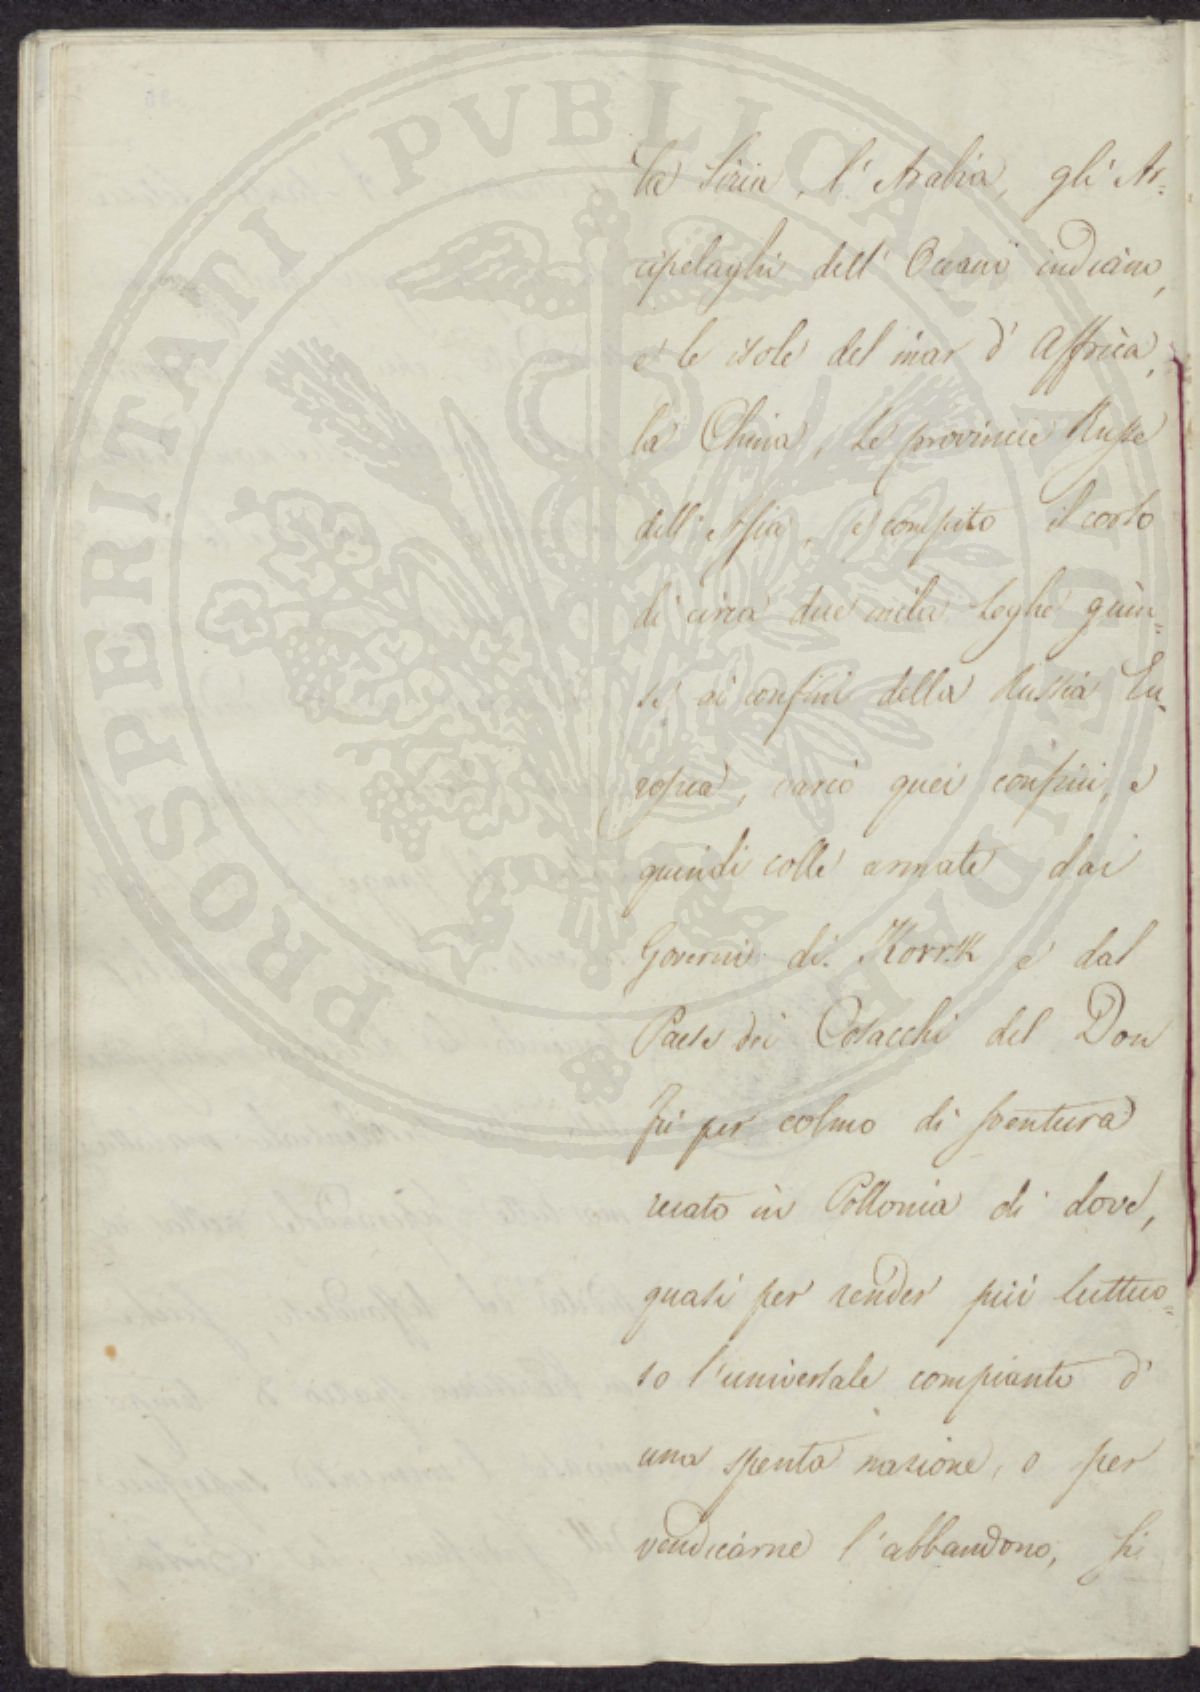 PROSPERITATI PVBLICAE AVGENDAE
la Siria, l'Arabia, gli Ar=
cipelaghi dell'Oceano indiano,
e le isole del mar d'Affrica,
la China, le provincie Russe
dell'Asia, e compito il corso
di circa due mila leghe giun=
se ai confini della Russia Eu=
ropea, varcò quei confini, e
quindi colle armate dai
Governi di Korsk e dal
Paese dei Cosacchi del Don
fu per colmo di sventura
recato in Pollonia di dove,
quasi per render più luttuo=
so l'universale compianto d'
una spenta nazione, o per
vendicarne l'abbandono, si